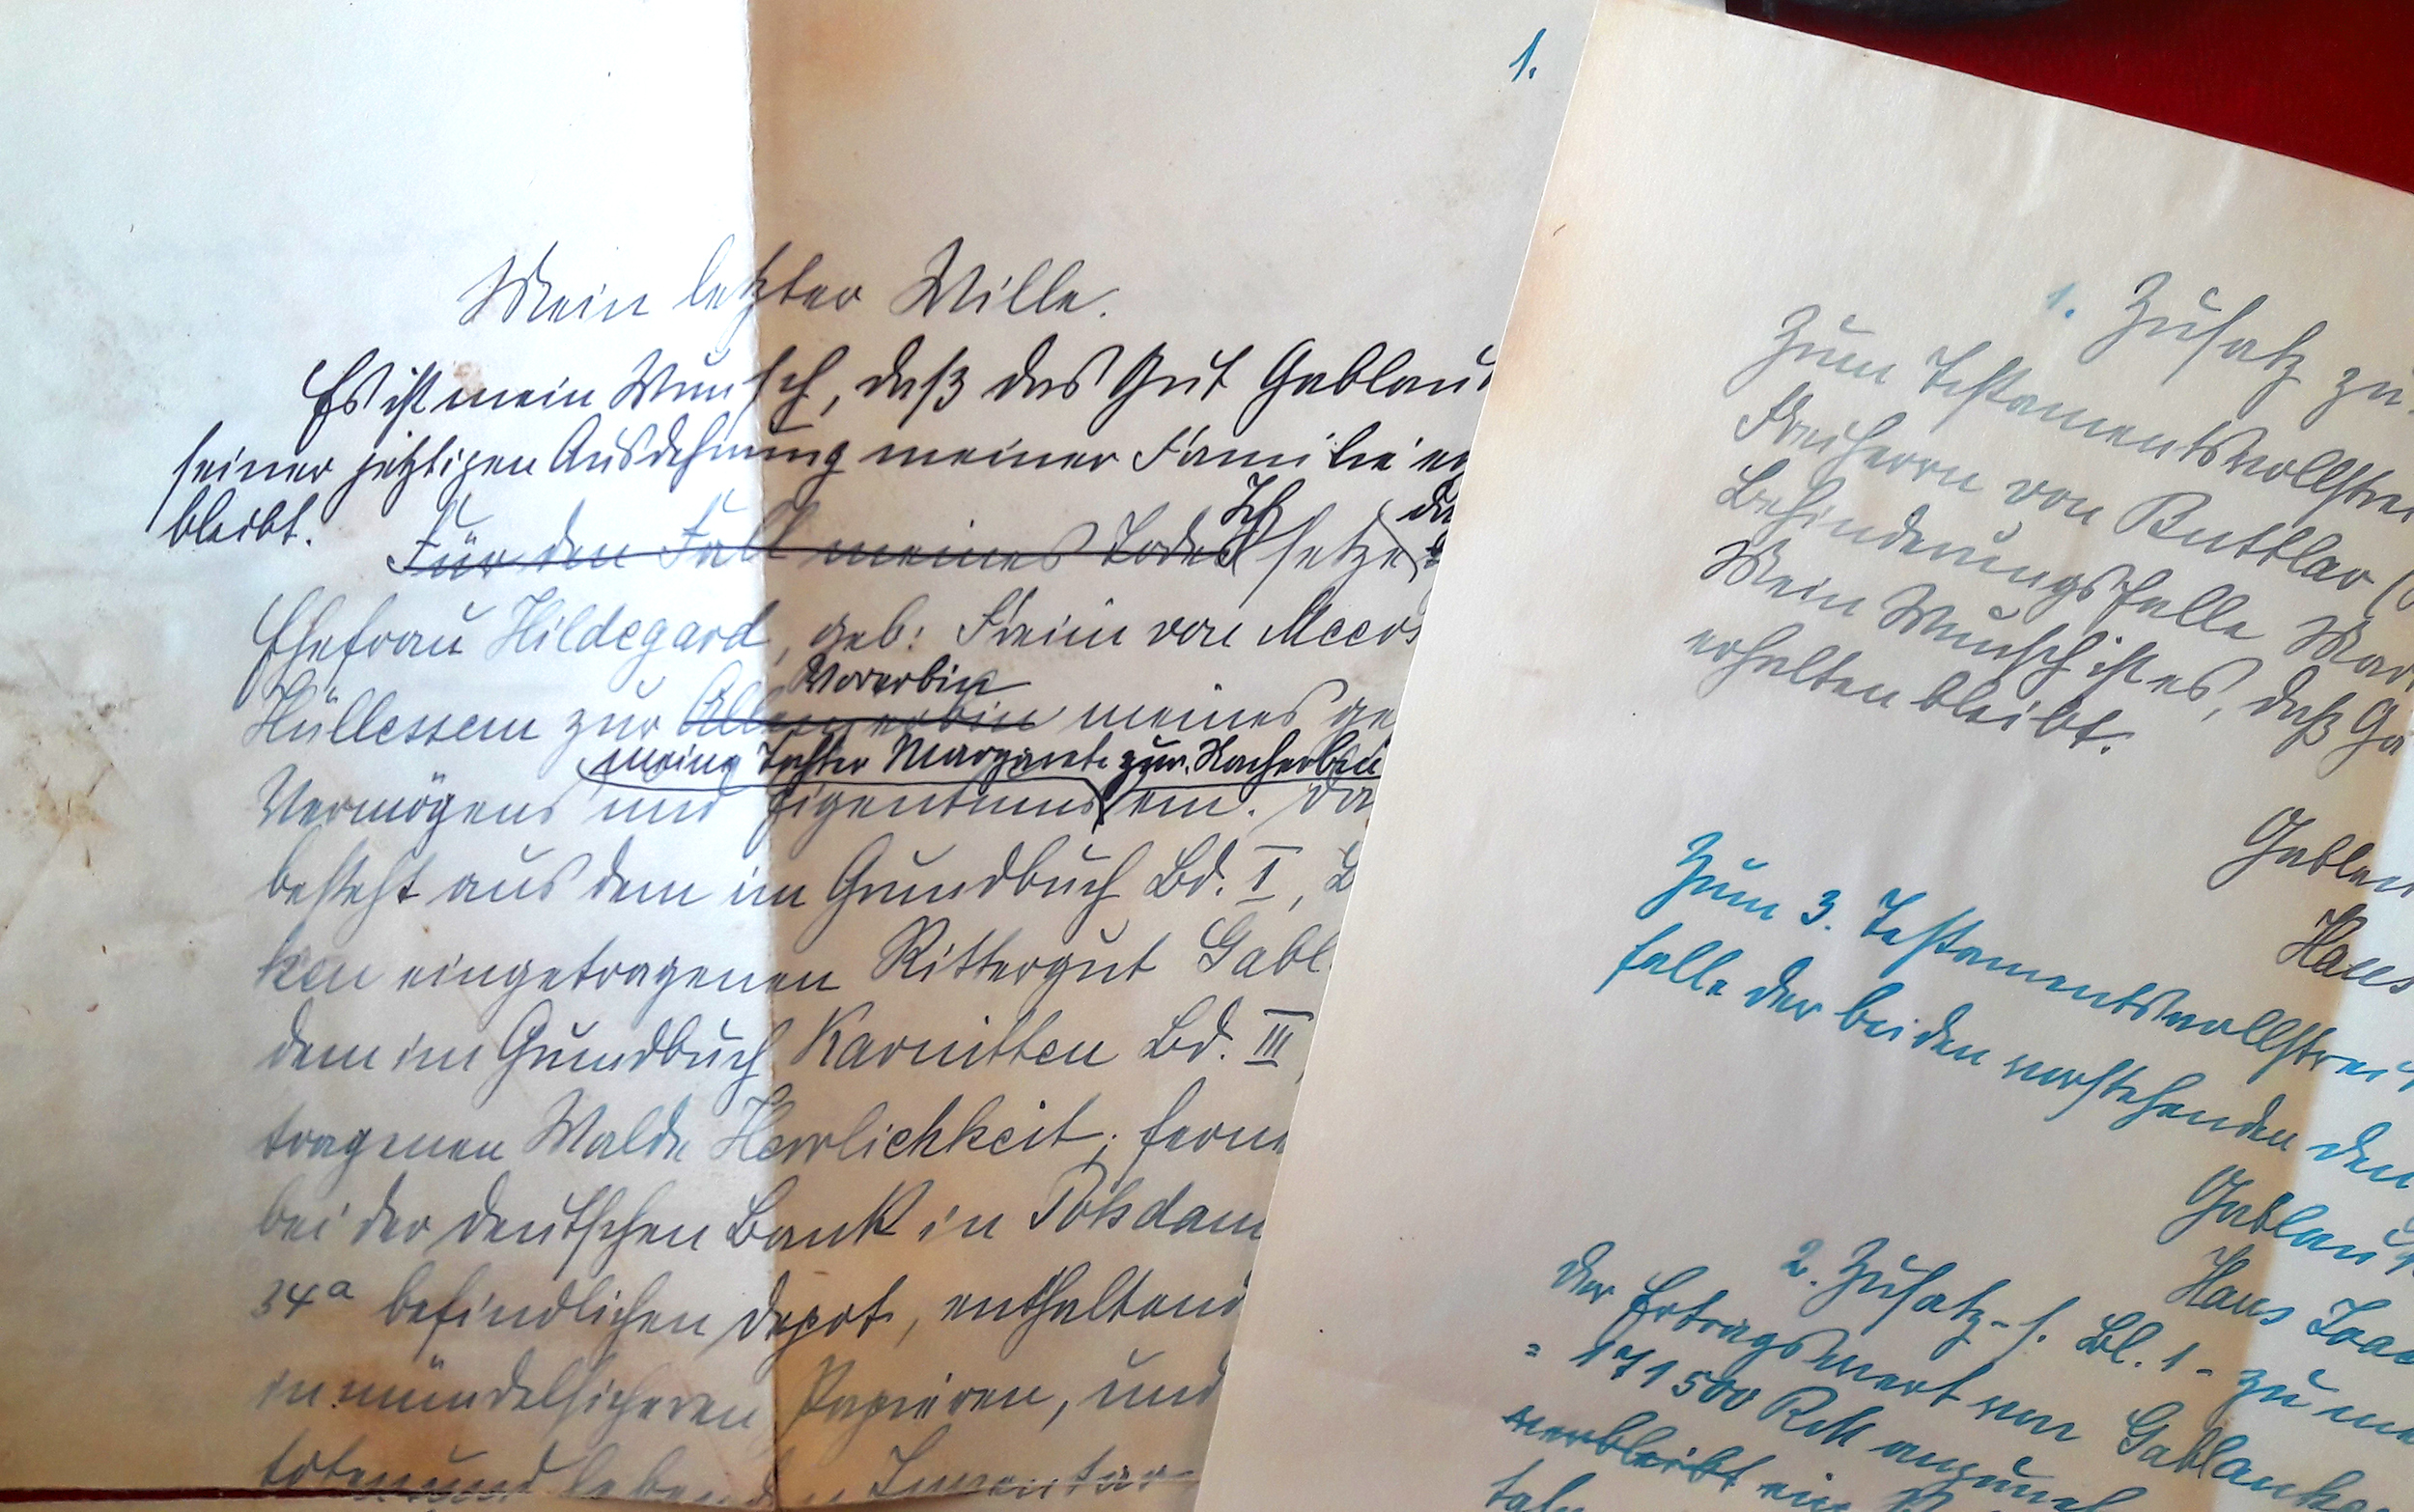 1.
Mein letzter Wille.
Es ist mein Wunsch, daß das Gut Gablau
seiner jetztigen Ausdehnung meiner Familie er
bleibt.
Ich die
Für den Fall meines Todes setze
Ehefrau Hildegard, geb: Freiin von Meers
Vorerbin
Hüllessem zur Alleinerbin meines ge
meine Tochter Margarete zur Nacherbin
Vermögens und Eigentums ein. Da
besteht aus dem im Grundbuch Bd. I, B
ken eingetragenen Rittergut Gabl
dem im Grundbuch Karnitten Bd. III,
tragenen Walde Herrlichkeit; fern
bei der deutschen Bank in Potsdam
34a befindlichen Depot, enthaltend
in mündelsicheren Papieren, und
totem und lebenden Inventar
1. Zusatz zu
Zum Testamentsvollstre
Freiherrn von Buttlar (
Behinderungsfalle Mar
Mein Wunsch ist es, daß Ga
erhalten bleibt.
Gablau
Hans
Zum 3. Testamentsvollstrec
falle der beiden vorstehenden den
Gablau
Hans Joac
2. Zusatz - s. Bl. 1 - zu me
Der Ertragswert von Gablauk
= 171500 RM anzuneh
verbleibt ein